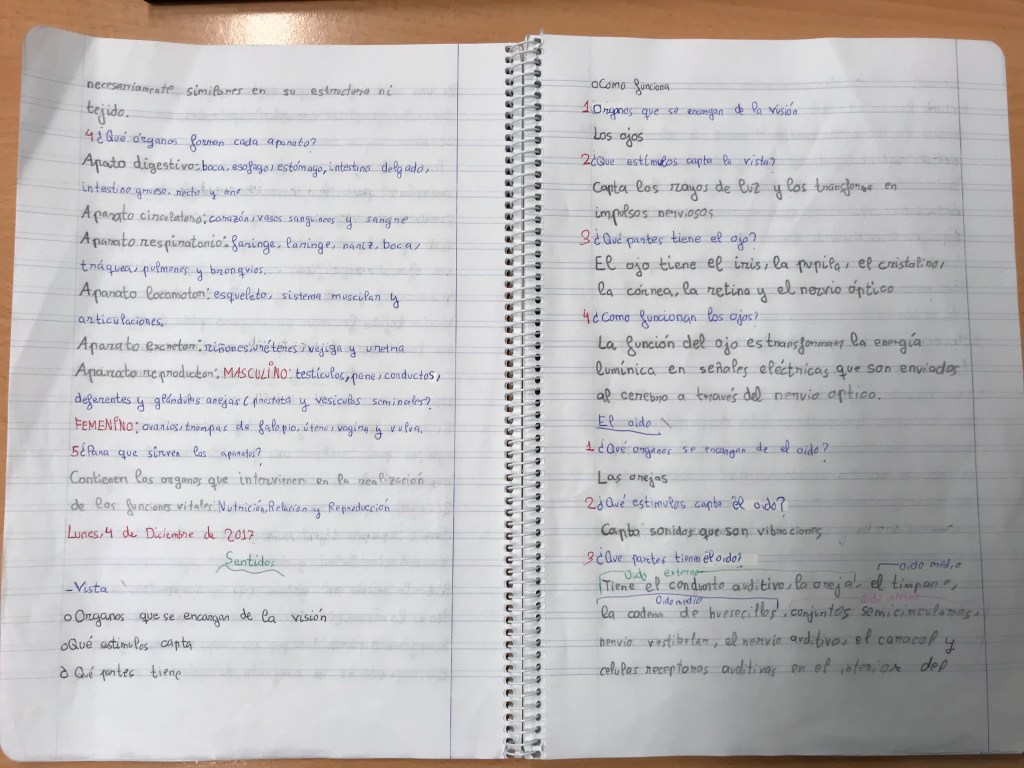 necesariamente similares en su estructura ni
tejido.
4¿Qué órganos forman cada aparato?
Apato digestivo: boca, esofago, estómago, intestino delgado,
intestino grueso, recto y ano
Aparato circulatorio: corazón, vasos sanguineos y sangre
Aparato respiratorio: faringe, laringe, nariz, boca,
tráquea, pulmones y bronquios.
Aparato locomotor: esqueleto, sistema muscular y
articulaciones.
Aparato excretor: riñones, uréteres, vejiga y uretra
Aparato reproductor: MASCULINO: testículos, pene, conductos,
deferentes y glándulas anejas (prostata y vesículas seminales?
FEMENINO: ovarios, trompas de falopio, útero, vagina y vulva.
5¿Para que sirven los aparatos?
Contienen los organos que intervienen en la realización,
de las funciones vitales: Nutrición, Relación y Reproducción
Lunes, 4 de Diciembre de 2017
Sentidos
-Vista
o Organos que se encargan de la visión
o Qué estimulos capta
o Qué partes tiene
o Como funciona
1 Organos que se encargan de la visión
Los ojos
2¿Que estímulos capta la vista?
Capta los rayos de luz y los transforma en
impulsos nerviosos
3¿Qué partes tiene el ojo?
El ojo tiene el iris, la pupila, el cristalino,
la córnea, la retina y el nervio óptico
4¿Como funcionan los ojos?
La función del ojo es transformar la energía
lumínica en señales eléctricas que son enviados
al cerebro a través del nervio optico.
El oido
1¿Qué organos se encargan de el oido?
Las orejas
2¿Qué estimulos capta el oido?
Capta sonidos que son vibraciones
3¿Que partes tienen el oido?
Oido externo
oido medio
Tiene el conducto auditivo, la oreja, el timpano,
Oido medio
oido interno
la cadena de huesecillos, conjuntos semicirculares,
nervio vestibular, el nervio auditivo, el caracol y
celulas receptoras auditivas en el interior del